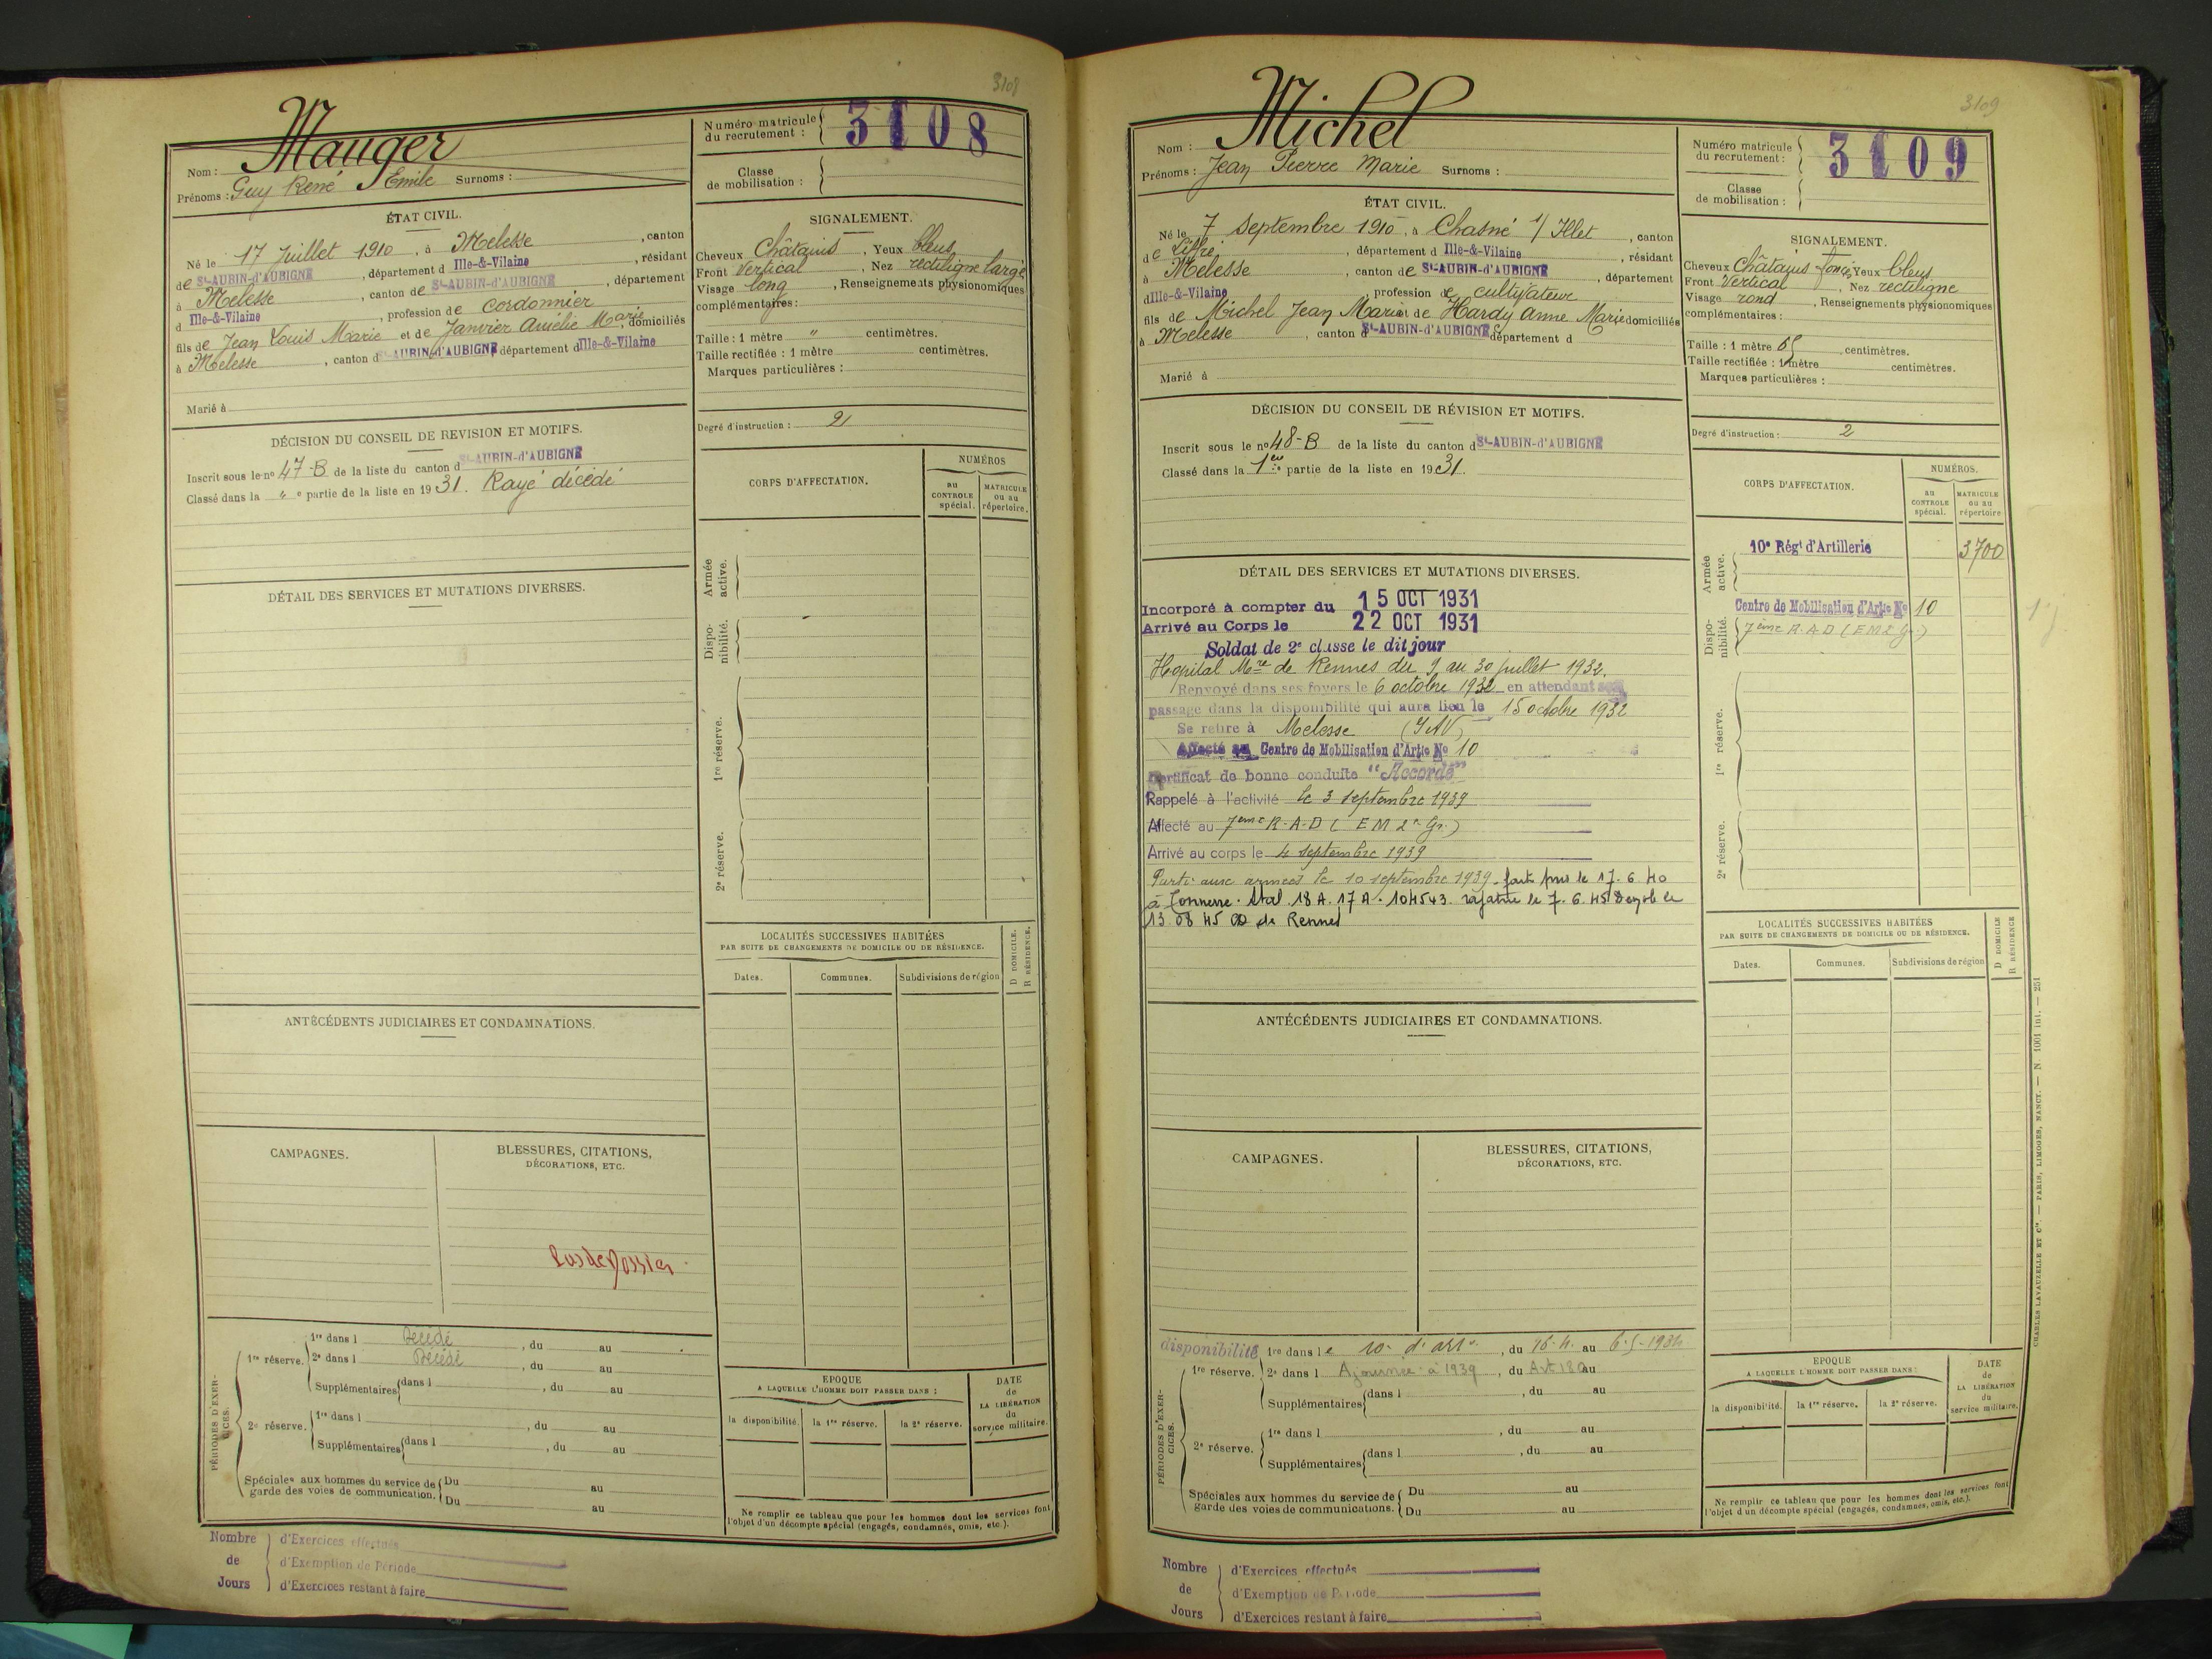 3108
Mauger
Nom :
Prénoms : Guy René Emile Surnoms :
Numéro matricule du recrutement : 3108
Classe de mobilisation :
ÉTAT CIVIL.
Né le 17 Juillet 1910, à Melesse, canton
de St-AUBIN-d'AUBIGNÉ, département d Ille-&-Vilaine, résidant
à Melesse, canton de St-AUBIN-d'AUBIGNÉ, département
d Ille-&-Vilaine, profession de cordonnier
fils de Jean Louis Marie et de Janvier Amélie Marie, domiciliés
à Melesse, canton d St-AUBIN-d'AUBIGNÉ département d Ille-&-Vilaine
Marié à
SIGNALEMENT.
Cheveux Châtains, Yeux bleus
Front Vertical, Nez rectiligne large
Visage long, Renseignements physionomiques
complémentaires :
Taille : 1 mètre " centimètres.
Taille rectifiée : 1 mètre centimètres.
Marques particulières :
Degré d'instruction : 2
DÉCISION DU CONSEIL DE REVISION ET MOTIFS.
Inscrit sous le nº 47-B de la liste du canton d St-AUBIN-d'AUBIGNÉ
Classé dans la " e partie de la liste en 1931. Rayé décédé
DÉTAIL DES SERVICES ET MUTATIONS DIVERSES.
CORPS D'AFFECTATION.
NUMÉROS
au CONTROLE spécial.
MATRICULE ou au répertoire.
Armée active.
Dispo-nibilité.
1re réserve.
2e réserve.
LOCALITÉS SUCCESSIVES HABITÉES
PAR SUITE DE CHANGEMENTS DE DOMICILE OU DE RÉSIDENCE.
Dates. Communes. Subdivisions de région
D DOMICILE.
R RÉSIDENCE.
ANTÉCÉDENTS JUDICIAIRES ET CONDAMNATIONS.
CAMPAGNES.
BLESSURES, CITATIONS,
DÉCORATIONS, ETC.
Pas de Dossier
PÉRIODES D'EXER-CICES.
1re réserve. 1re dans l Décédé, du au
2e dans l Décédé, du au
Supplémentaires dans l, du au
2e réserve. 1re dans l, du au
Supplémentaires dans l, du au
Spéciales aux hommes du service de garde des voies de communication. Du au
Du au
EPOQUE
A LAQUELLE L'HOMME DOIT PASSER DANS :
la disponibilité. la 1re réserve. la 2e réserve.
DATE de LA LIBÉRATION du service militaire.
Ne remplir ce tableau que pour les hommes dont les services font
l'objet d'un décompte spécial (engagés, condamnés, omis, etc.).
Nombre de Jours
d'Exercices effectués
d'Exemption de Période
d'Exercices restant à faire
3109
Michel
Nom :
Prénoms : Jean Pierre Marie Surnoms :
Numéro matricule du recrutement : 3109
Classe de mobilisation :
ÉTAT CIVIL.
Né le 7 Septembre 1910, à Chasné s/ Illet, canton
de Liffré, département d Ille-&-Vilaine, résidant
à Melesse, canton de St-AUBIN-d'AUBIGNÉ, département
d Ille-&-Vilaine, profession de cultivateur
fils de Michel Jean Marie et de Hardy Anne Marie domiciliés
à Melesse, canton d St-AUBIN-d'AUBIGNÉ département d
Marié à
SIGNALEMENT.
Cheveux Châtains foncé Yeux bleus
Front Vertical, Nez rectiligne
Visage rond, Renseignements physionomiques
complémentaires :
Taille : 1 mètre 65 centimètres.
Taille rectifiée : 1 mètre centimètres.
Marques particulières :
Degré d'instruction : 2
DÉCISION DU CONSEIL DE RÉVISION ET MOTIFS.
Inscrit sous le nº 48-B de la liste du canton d St-AUBIN-d'AUBIGNÉ
Classé dans la 1ère partie de la liste en 1931.
DÉTAIL DES SERVICES ET MUTATIONS DIVERSES.
Incorporé à compter du 15 OCT 1931
Arrivé au Corps le 22 OCT 1931
Soldat de 2e classe le dit jour
Hopital Mre de Rennes du 9 au 30 juillet 1932.
Renvoyé dans ses foyers le 6 octobre 1932 en attendant son
passage dans la disponibilité qui aura lieu le 15 octobre 1932
Se retire à Melesse (I&V)
Affecté au Centre de Mobilisation d'Artie No 10
Certificat de bonne conduite "Accordé"
Rappelé à l'activité le 3 septembre 1939
Affecté au 7eme R-A-D (EM 2e Gr.)
Arrivé au corps le 4 septembre 1939
Parti aux armées le 10 septembre 1939. fait pris le 17.6.40
à Tonnerre. Stal. 18 A. 17 A. 104543. rapatrié le 7.6.45 Démob le
13 08 45 de Rennes
CORPS D'AFFECTATION.
NUMÉROS.
au CONTROLE spécial.
MATRICULE ou au répertoire
Armée active. 10e Régt d'Artillerie 3700
Dispo-nibilité. Centre de Mobilisation d'Artie No 10
7eme R-A-D (EM 2e Gr.)
1re réserve.
2e réserve.
LOCALITÉS SUCCESSIVES HABITÉES
PAR SUITE DE CHANGEMENTS DE DOMICILE OU DE RÉSIDENCE.
Dates. Communes. Subdivisions de région
D DOMICILE
R RÉSIDENCE
ANTÉCÉDENTS JUDICIAIRES ET CONDAMNATIONS.
CAMPAGNES.
BLESSURES, CITATIONS,
DÉCORATIONS, ETC.
PÉRIODES D'EXER-CICES.
disponibilité 1re dans le 10e d'artie, du 16.4. au 6-5-1934
1re réserve. 2e dans l Ajournée à 1939, du Art 180 au
Supplémentaires dans l, du au
2e réserve. 1re dans l, du au
Supplémentaires dans l, du au
Spéciales aux hommes du service de garde des voies de communications. Du au
Du au
EPOQUE
A LAQUELLE L'HOMME DOIT PASSER DANS :
la disponibilité. la 1re réserve. la 2e réserve.
DATE de LA LIBÉRATION du service militaire.
Ne remplir ce tableau que pour les hommes dont les services font
l'objet d'un décompte spécial (engagés, condamnés, omis, etc.).
CHARLES LAVAUZELLE ET Cie. — PARIS, LIMOGES, NANCY. — N. 1001 int. — 251
Nombre de Jours
d'Exercices effectués
d'Exemption de Période
d'Exercices restant à faire